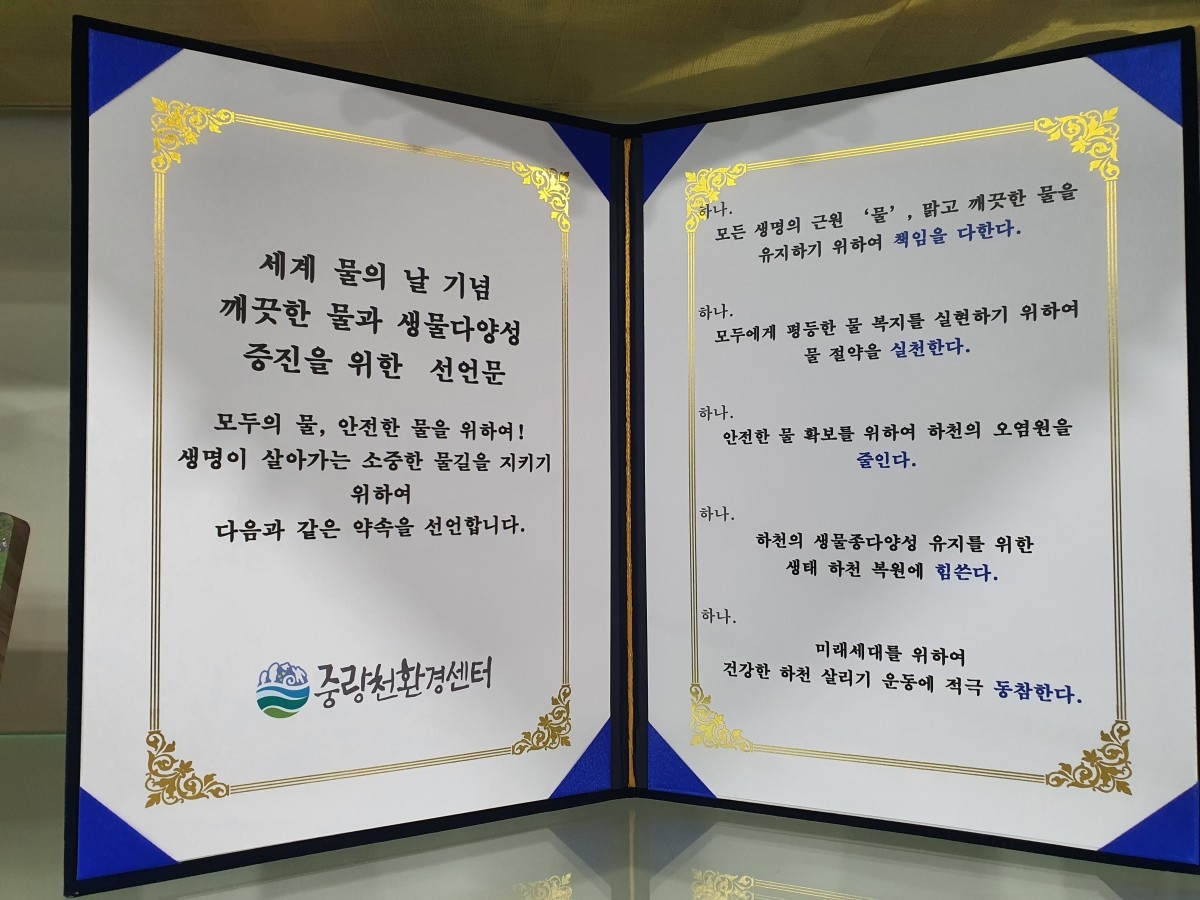 세계 물의 날 기념
깨끗한 물과 생물다양성
증진을 위한 선언문
모두의 물, 안전한 물을 위하여!
생명이 살아가는 소중한 물길을 지키기
위하여
다음과 같은 약속을 선언합니다.
중랑천환경센터
하나.
모든 생명의 근원 ‘물’, 맑고 깨끗한 물을
유지하기 위하여 책임을 다한다.
하나.
모두에게 평등한 물 복지를 실현하기 위하여
물 절약을 실천한다.
하나.
안전한 물 확보를 위하여 하천의 오염원을
줄인다.
하나.
하천의 생물종다양성 유지를 위한
생태 하천 복원에 힘쓴다.
하나.
미래세대를 위하여
건강한 하천 살리기 운동에 적극 동참한다.